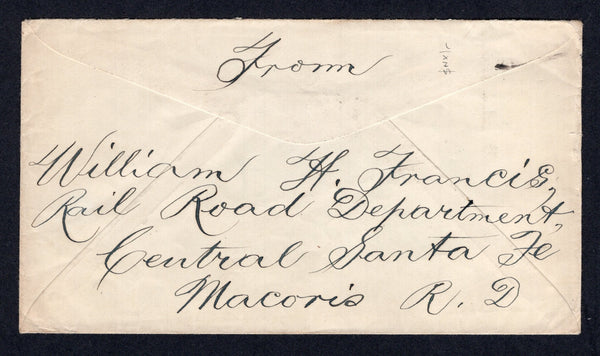 From
William H. Francis,
Rail Road Department,
Central Santa Fe
Macoris R. D